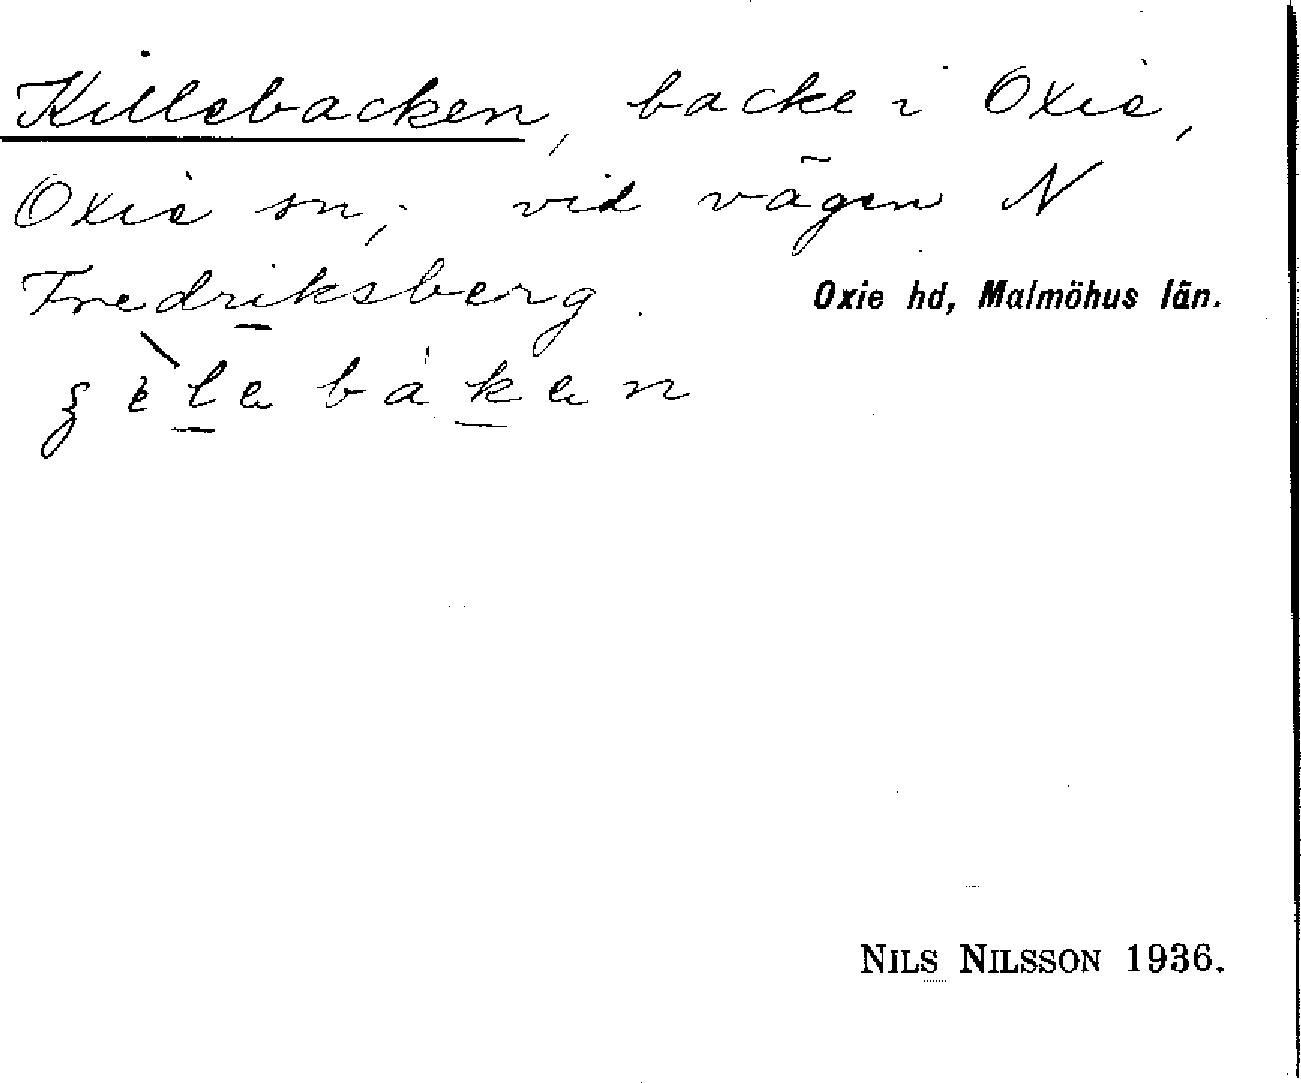 Killebacken, backe i Oxie,
Oxie sn; vid vägen N
Fredriksberg.
Oxie hd, Malmöhus län.
NILS NILSSON 1936.